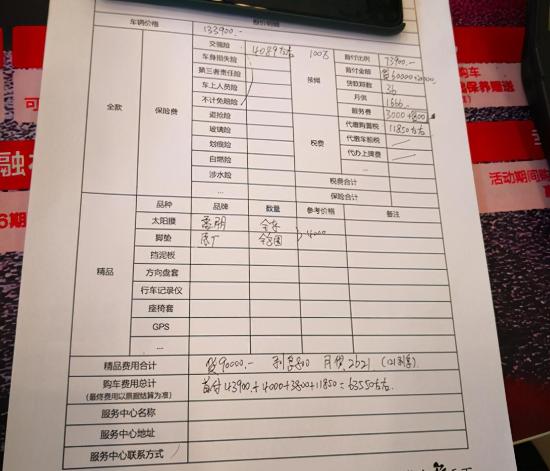 车辆价格 133900.-
全款
保险费
交强险 4089左右
车身损失险
第三者责任险
车上人员险
不计免赔险
盗抢险
玻璃险
划痕险
自燃险
涉水险
...
按揭
首付比例 73900.-
首付金额 贷60000
贷款期数 36
月供 1666.-
服务费 3000+800
税费
代缴购置税 11850左右
代缴车船税
代办上牌费
税费合计
保险合计
精品
品种 品牌 数量 参考价格 备注
太阳膜 全车 4000
脚垫 原厂
挡泥板
方向盘套
行车记录仪
座椅套
GPS
...
精品费用合计 贷90000.- 月供2621
购车费用总计 首付43900.+4000+3800+11850=63550左右.
(最终费用以票据结算为准)
服务中心名称
服务中心地址
服务中心联系方式
购车
保养赠送
活动期间
6期
融
可